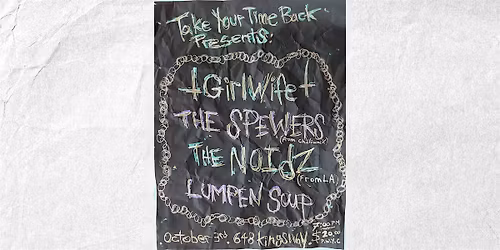 Take Your Time Back
Presents:
†GirlWife†
THE SPEWERS
THE NOIdZ
(From LA)
LUMPEN SOUP
October 3rd. 648 Kingsway.
$20.00